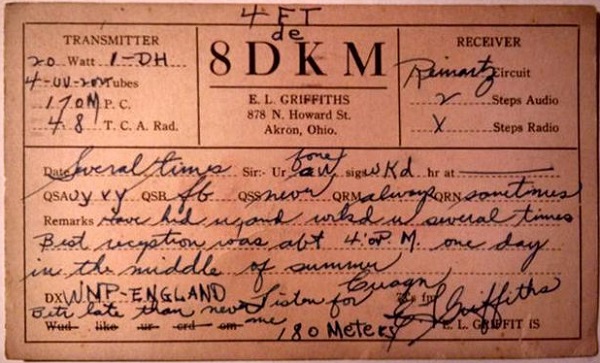 4 FT
de
TRANSMITTER
20 Watt 1-DH
4-UV-202 Tubes
170 M P. C.
4.8 T. C. A. Rad.
8DKM
E. L. GRIFFITHS
878 N. Howard St.
Akron, Ohio.
RECEIVER
Reinartz Circuit
2 Steps Audio
X Steps Radio
Date Several times Sir:- Ur fone sigs wkd hr at
QSA vy vy QSB fb QSS never QRM always QRN sometimes
Remarks Have hrd u and wrkd u several times
Best reception was abt 4 P.M. one day
in the middle of summer
DX WNP-ENGLAND Cuagn
Bett late than never Listen for me
180 Meters
Wud like ur crd om
E L Griffiths
E. L. GRIFFITHS